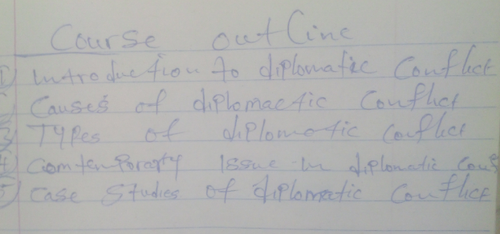 Course outline
1) introduction to diplomatic Conflict
Causes of diplomactic Conflict
3 Types of diplomatic Conflict
4 Comtemporary Issue in diplomatic Con
5) Case Studies of diplomatic Conflict